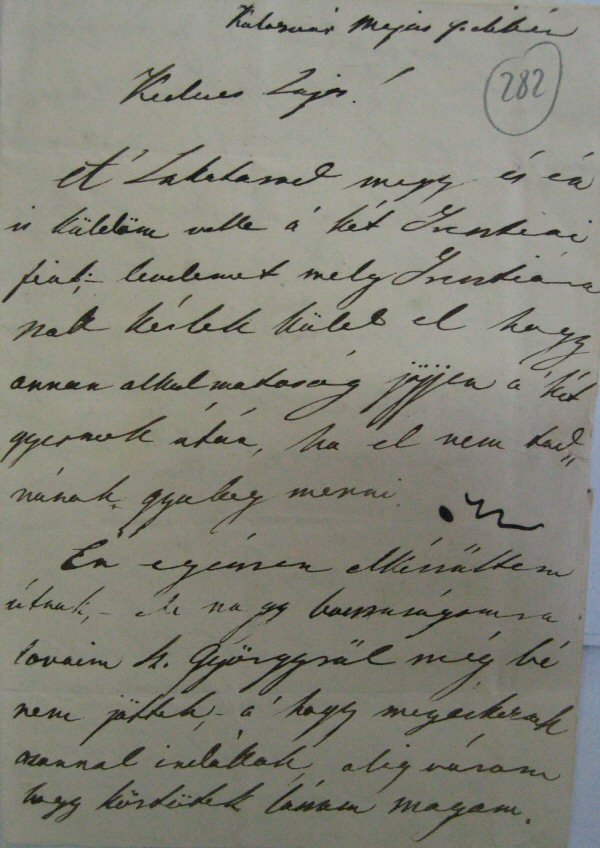 Kolozsvár Május
282
Kedves Lajos!
A' megy és én
is küldöm vele a' két
fiát, – levelemet mely
nak kérlek küldd el hogy
onnan alkalmatosság jöjjen a' két
gyermek után, ha el nem tud„
nának gyalog menni.
Én egészen elkészültem
útnak, – de nagy bosszuságomra
lovaim Sz. Györgyről még bé
nem jöttek, – a' hogy megérkeznek
azonnal indúlok, alig várom
hogy köztetek lássam magam.